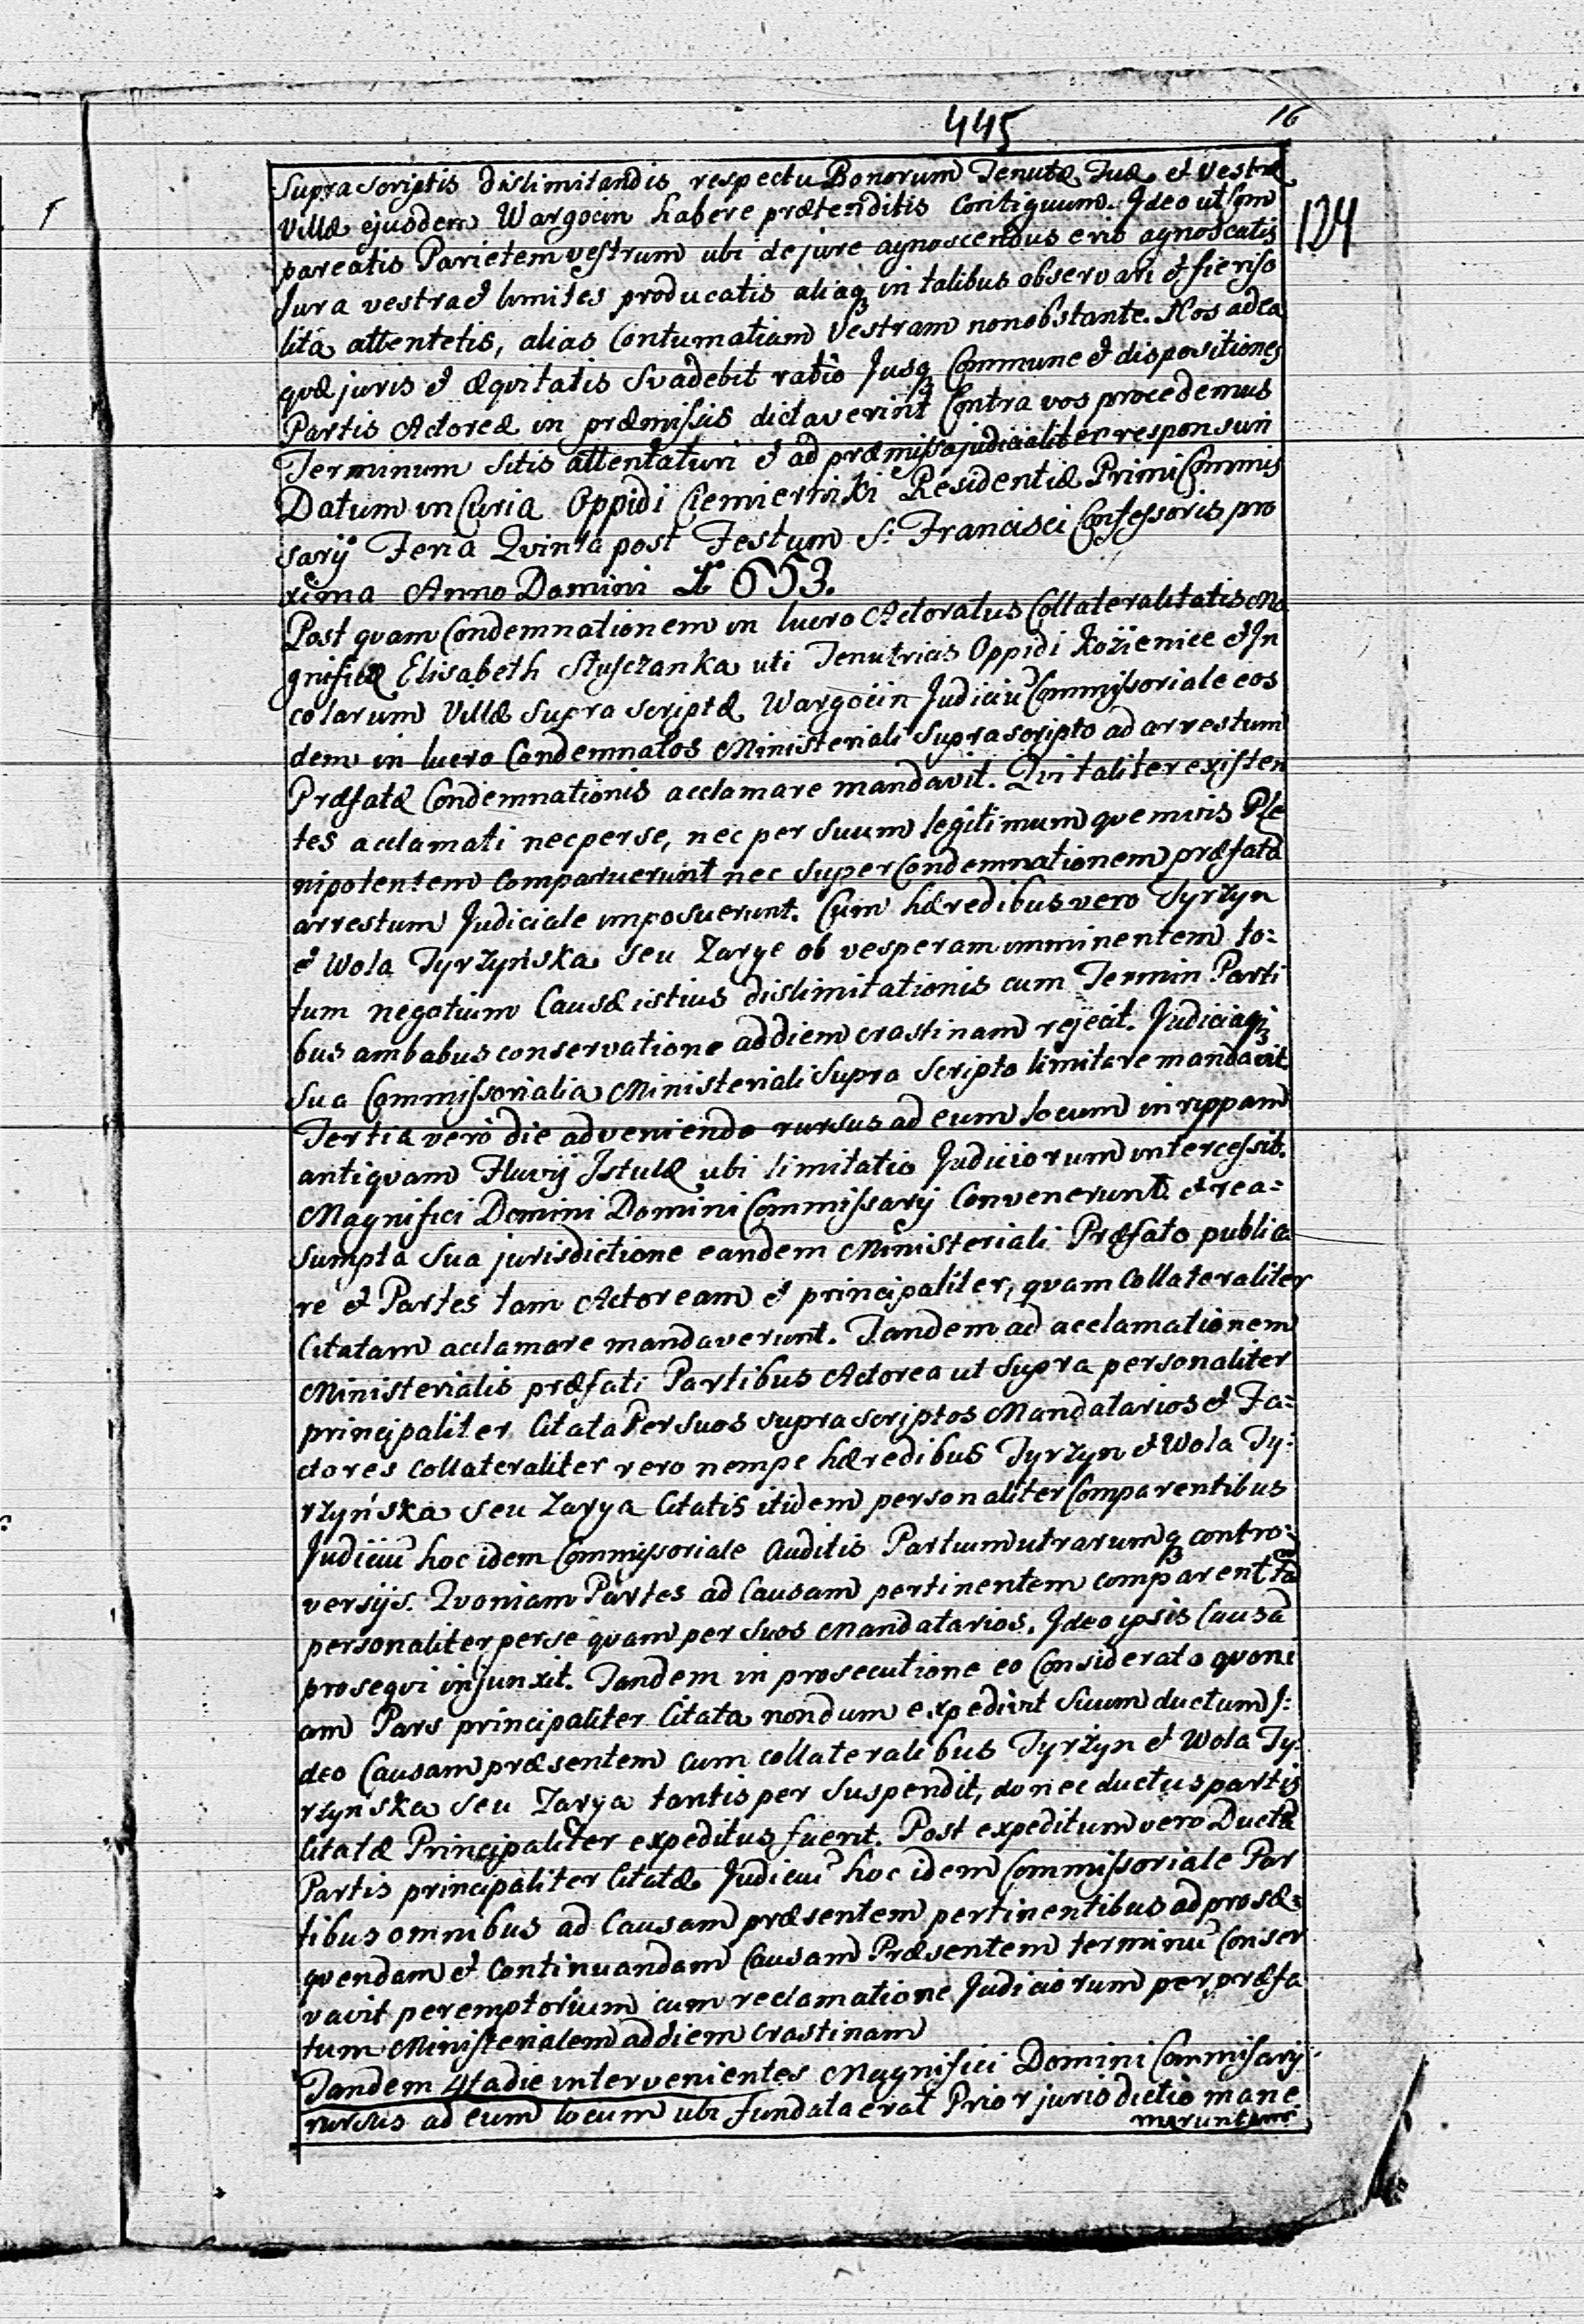 445
16
124
Suprascriptis dislimitandis respectu Bonorum Tenutæ Tuæ et Vestræ
Villæ ejusdem Wargocin habere prætenditis Contiguum. Ideo ut Com
pareatis Parietem vestrum ubi de jure agnoscendus erit agnoscatis
Jura vestra et limites producatis aliaq in talibus observari et fieri so
lita attentetis, alias Contumatiam Vestram nonobstante. Nos ad ea
quæ juris et æqvitatis Svadebit ratio Jusq Commune et dispositiones
Partis Actoreæ in præmissis dictaverint Contra vos procedemus
Terminum sitis attentaturi et ad præmissa judicialiter responsuri
Datum in Curia Oppidi Ciemierniki Residentiæ Primi Commis
sarij Feria Qvinta post Festum S: Francisci Confessoris pro
xima Anno Domini 1653.
Post quam Condemnationem in lucro Actoratus Collateralitatis Ma
gnificæ Elisabeth Słusczanka uti Tenutricis Oppidi Kozienice et In
colarum Villæ Supra scriptæ Wargocin Judiciu Commissoriale eos
dem in lucro Condemnatos Ministeriali Suprascripto ad arrestum
Præfatæ Condemnationis acclamare mandavit. Qvi taliter existen
tes acclamati nec per se, nec per suum legitimum quemvis Ple
nipotentem Comparuerunt nec Super Condemnationem præfatã
arrestum Judiciale imposuerunt. Cum hæredibus vero Tyrzyn
et Wola Tyrzyńska seu Zarye ob vesperam imminentem to:
tum negotium Causæ istius dislimitationis cum Termin Parti
bus ambabus conservatione ad diem crastinam rejecit. Judiciaq
Sua Commissorialia Ministeriali Supra scripto limitare mandavit
Tertia vero die adveniendo rursus ad eum locum in rippam
antiqvam Fluvij Istulæ ubi limitatio Judiciorum intercessit.
Magnifici Domini Domini Commissarij Convenerunt et rea=
sumpta Sua jurisdictione eandem Ministeriali Præfato publica
re et Partes tam Actoream et principaliter, quam Collateraliter
Citatam acclamare mandaverunt. Tandem ad acclamationem
Ministerialis præfati Partibus Actorea ut Supra personaliter
principaliter Citata Per suos suprascriptos Mandatarios et Fa=
ctores Collateraliter vero nempe hæredibus Tyrzyn et Wola Ty:
rzyńska seu Zarya Citatis itidem personaliter Comparentibus
Judiciu hoc idem Commissoriale Auditis Partium utrarumq contro=
versijs. Qvoniam Partes ad Causam pertinentem comparent tã
personaliter per se quam per Suos Mandatarios. Ideo ipsis Causã
proseqvi injunxit. Tandem in prosecutione eo Considerato quoni
am Pars principaliter Citata nondum expedivit Suum ductum I:
deo Causam præsentem cum collateralibus Tyrzyn et Wola Ty
rzyńska seu Zarya tantisper suspendit, donec ductus partis
Citatæ Principaliter expeditus fuerit. Post expeditum vero Ductũ
Partis principaliter Citatæ Judiciu hoc idem Commissoriale Par
tibus omnibus ad Causam præsentem pertinentibus ad prosæ=
qvendam et Continuandam Causam Præsentem terminu Conser
vavit peremptorium cum reclamatione Judiciorum per præfa
tum Ministerialem ad diem Crastinam
Tandem 4ta die intervenientes Magnifici Domini Commisarij
rursus ad eum locum ubi fundata erat Prior jurisdictio mane